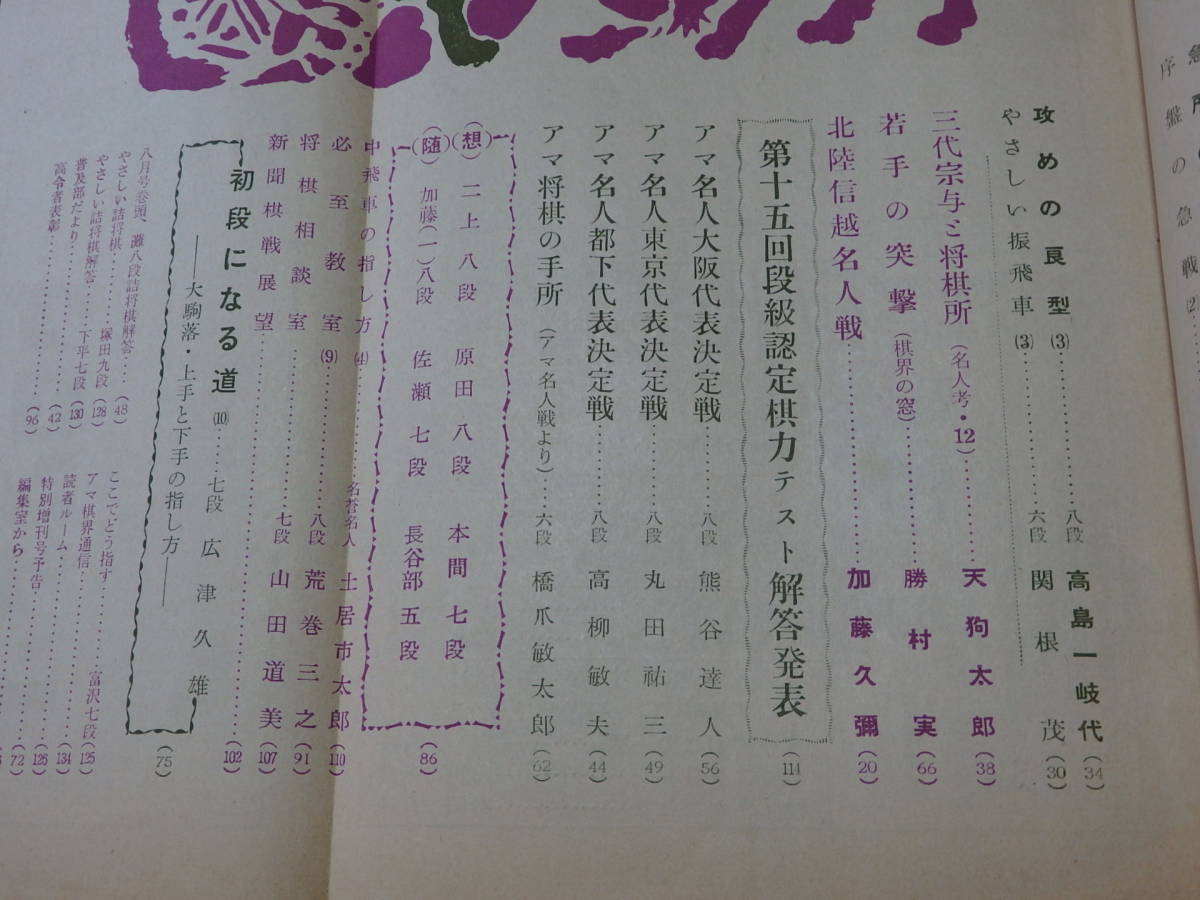 序盤の急戦(2)
攻めの良型(3)……八段 高島一岐代(34)
やさしい振飛車(3)……六段 関根茂(30)
三代宗与と将棋所(名人考・12)……天狗太郎(38)
若手の突撃(棋界の窓)……勝村実(66)
北陸信越名人戦……加藤久彌(20)
第十五回段級認定棋力テスト解答発表(114)
アマ名人大阪代表決定戦……八段 熊谷達人(56)
アマ名人東京代表決定戦……八段 丸田祐三(49)
アマ名人都下代表決定戦……八段 高柳敏夫(44)
アマ将棋の手所(アマ名人戦より)……六段 橋爪敏太郎(62)
(想) 二上八段 原田八段 本間七段
(随) 加藤(一)八段 佐瀬七段 長谷部五段(86)
中飛車の指し方(4)……名誉名人 土居市太郎(110)
必至教室(9)……八段 荒巻三之(91)
将棋相談室……七段 山田道美(107)
新聞棋戦展望……(102)
初段になる道(10)……七段 広津久雄
――大駒落・上手と下手の指し方――(75)
八月号巻頭、灘八段詰将棋解答……(48)
やさしい詰将棋……塚田九段(128)
やさしい詰将棋解答……下平七段(130)
普及部だより……(42)
高令者表彰……(96)
ここでどう指す……富沢七段(125)
アマ棋界通信……(134)
読者ルーム……(126)
特別増刊号予告……(72)
編集室から